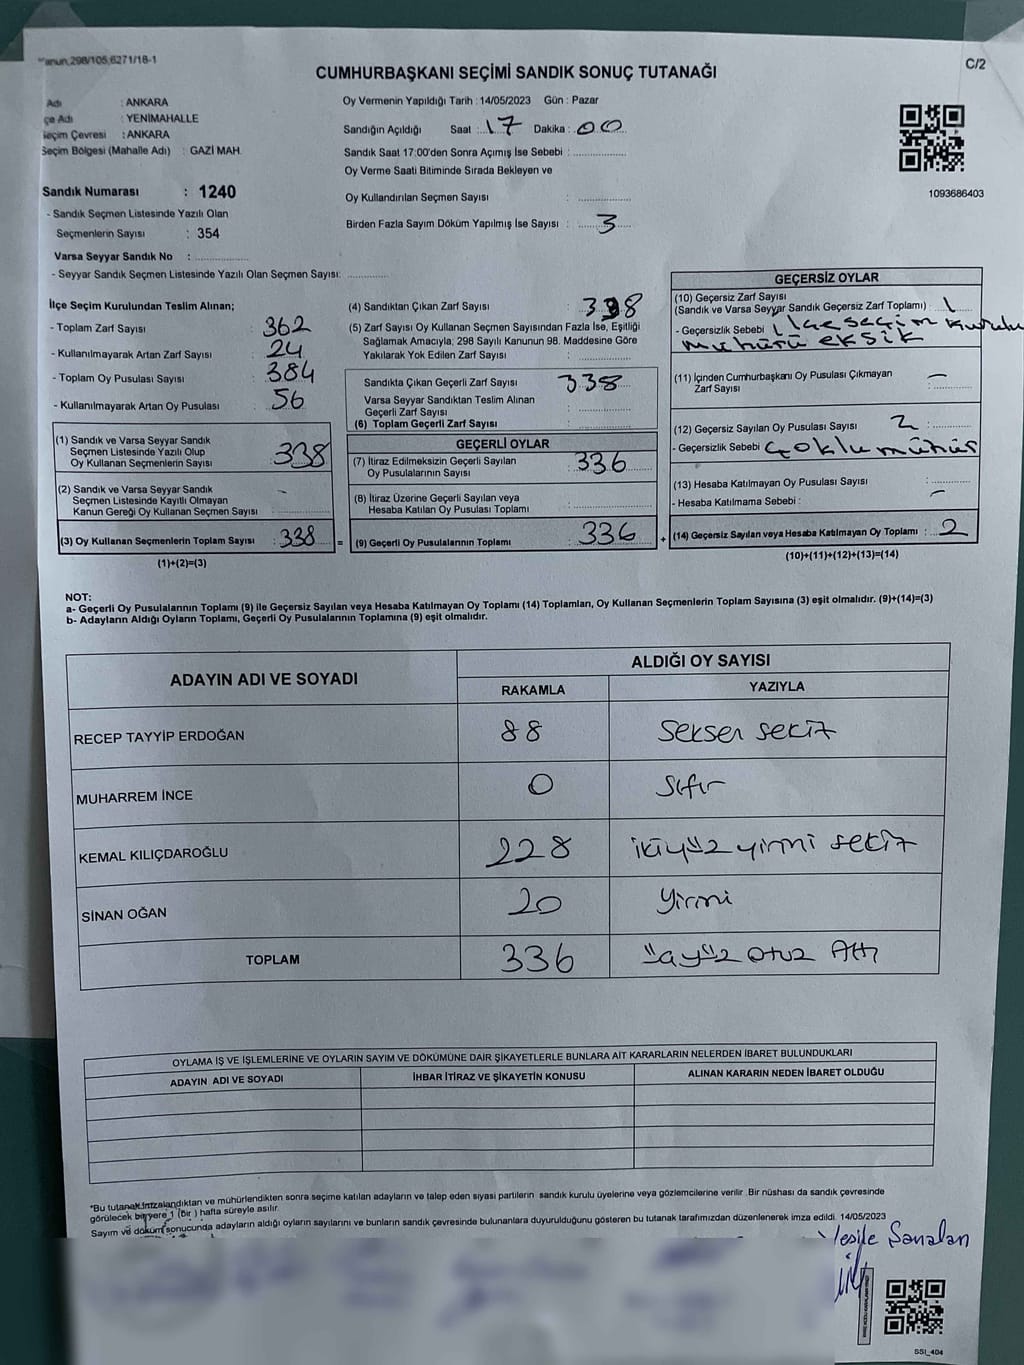 anun,298/105,6271/18-1
C/2
CUMHURBAŞKANI SEÇİMİ SANDIK SONUÇ TUTANAĞI
Adı : ANKARA
çe Adı : YENİMAHALLE
Seçim Çevresi : ANKARA
Seçim Bölgesi (Mahalle Adı) : GAZİ MAH.
Sandık Numarası : 1240
- Sandık Seçmen Listesinde Yazılı Olan
Seçmenlerin Sayısı : 354
Varsa Seyyar Sandık No :
- Seyyar Sandık Seçmen Listesinde Yazılı Olan Seçmen Sayısı:
Oy Vermenin Yapıldığı Tarih : 14/05/2023 Gün : Pazar
Sandığın Açıldığı Saat : 17 Dakika : 00
Sandık Saat 17:00'den Sonra Açımış İse Sebebi :
Oy Verme Saati Bitiminde Sırada Bekleyen ve
Oy Kullandırılan Seçmen Sayısı :
Birden Fazla Sayım Döküm Yapılmış İse Sayısı : 3
1093686403
İlçe Seçim Kurulundan Teslim Alınan;
- Toplam Zarf Sayısı : 362
- Kullanılmayarak Artan Zarf Sayısı : 24
- Toplam Oy Pusulası Sayısı : 384
- Kullanılmayarak Artan Oy Pusulası : 56
(1) Sandık ve Varsa Seyyar Sandık
Seçmen Listesinde Yazılı Olup
Oy Kullanan Seçmenlerin Sayısı : 338
(2) Sandık ve Varsa Seyyar Sandık
Seçmen Listesinde Kayıtlı Olmayan
Kanun Gereği Oy Kullanan Seçmen Sayısı : -
(3) Oy Kullanan Seçmenlerin Toplam Sayısı : 338
(1)+(2)=(3)
=
(4) Sandıktan Çıkan Zarf Sayısı : 338
(5) Zarf Sayısı Oy Kullanan Seçmen Sayısından Fazla İse, Eşitliği
Sağlamak Amacıyla, 298 Sayılı Kanunun 98. Maddesine Göre
Yakılarak Yok Edilen Zarf Sayısı :
Sandıkta Çıkan Geçerli Zarf Sayısı : 338
Varsa Seyyar Sandıktan Teslim Alınan
Geçerli Zarf Sayısı :
(6) Toplam Geçerli Zarf Sayısı :
GEÇERLİ OYLAR
(7) İtiraz Edilmeksizin Geçerli Sayılan
Oy Pusulalarının Sayısı : 336
(8) İtiraz Üzerine Geçerli Sayılan veya
Hesaba Katılan Oy Pusulası Toplamı :
(9) Geçerli Oy Pusulalarının Toplamı : 336
+
GEÇERSİZ OYLAR
(10) Geçersiz Zarf Sayısı
(Sandık ve Varsa Seyyar Sandık Geçersiz Zarf Toplamı) : 1
- Geçersizlik Sebebi : ilçe seçim kurulu
mühürü eksik
(11) İçinden Cumhurbaşkanı Oy Pusulası Çıkmayan
Zarf Sayısı : -
(12) Geçersiz Sayılan Oy Pusulası Sayısı : 2
- Geçersizlik Sebebi : Çoklu mühür
(13) Hesaba Katılmayan Oy Pusulası Sayısı :
- Hesaba Katılmama Sebebi : -
(14) Geçersiz Sayılan veya Hesaba Katılmayan Oy Toplamı : 2
(10)+(11)+(12)+(13)=(14)
NOT:
a- Geçerli Oy Pusulalarının Toplamı (9) ile Geçersiz Sayılan veya Hesaba Katılmayan Oy Toplamı (14) Toplamları, Oy Kullanan Seçmenlerin Toplam Sayısına (3) eşit olmalıdır. (9)+(14)=(3)
b- Adayların Aldığı Oyların Toplamı, Geçerli Oy Pusulalarının Toplamına (9) eşit olmalıdır.
ADAYIN ADI VE SOYADI ALDIĞI OY SAYISI
RAKAMLA YAZIYLA
RECEP TAYYİP ERDOĞAN 88 Seksen sekiz
MUHARREM İNCE 0 Sıfır
KEMAL KILIÇDAROĞLU 228 ikiyüz yirmi sekiz
SİNAN OĞAN 20 Yirmi
TOPLAM 336 üçyüz otuz Altı
OYLAMA İŞ VE İŞLEMLERİNE VE OYLARIN SAYIM VE DÖKÜMÜNE DAİR ŞİKAYETLERLE BUNLARA AİT KARARLARIN NELERDEN İBARET BULUNDUKLARI
ADAYIN ADI VE SOYADI İHBAR İTİRAZ VE ŞİKAYETİN KONUSU ALINAN KARARIN NEDEN İBARET OLDUĞU
*Bu tutanak imzalandıktan ve mühürlendikten sonra seçime katılan adayların ve talep eden siyasi partilerin sandık kurulu üyelerine veya gözlemcilerine verilir. Bir nüshası da sandık çevresinde
görülecek bir yere 1 (bir) hafta süreyle asılır.
Sayım ve döküm sonucunda adayların aldığı oyların sayılarını ve bunların sandık çevresinde bulunanlara duyurulduğunu gösteren bu tutanak tarafımızdan düzenlenerek imza edildi. 14/05/2023
SSI_404